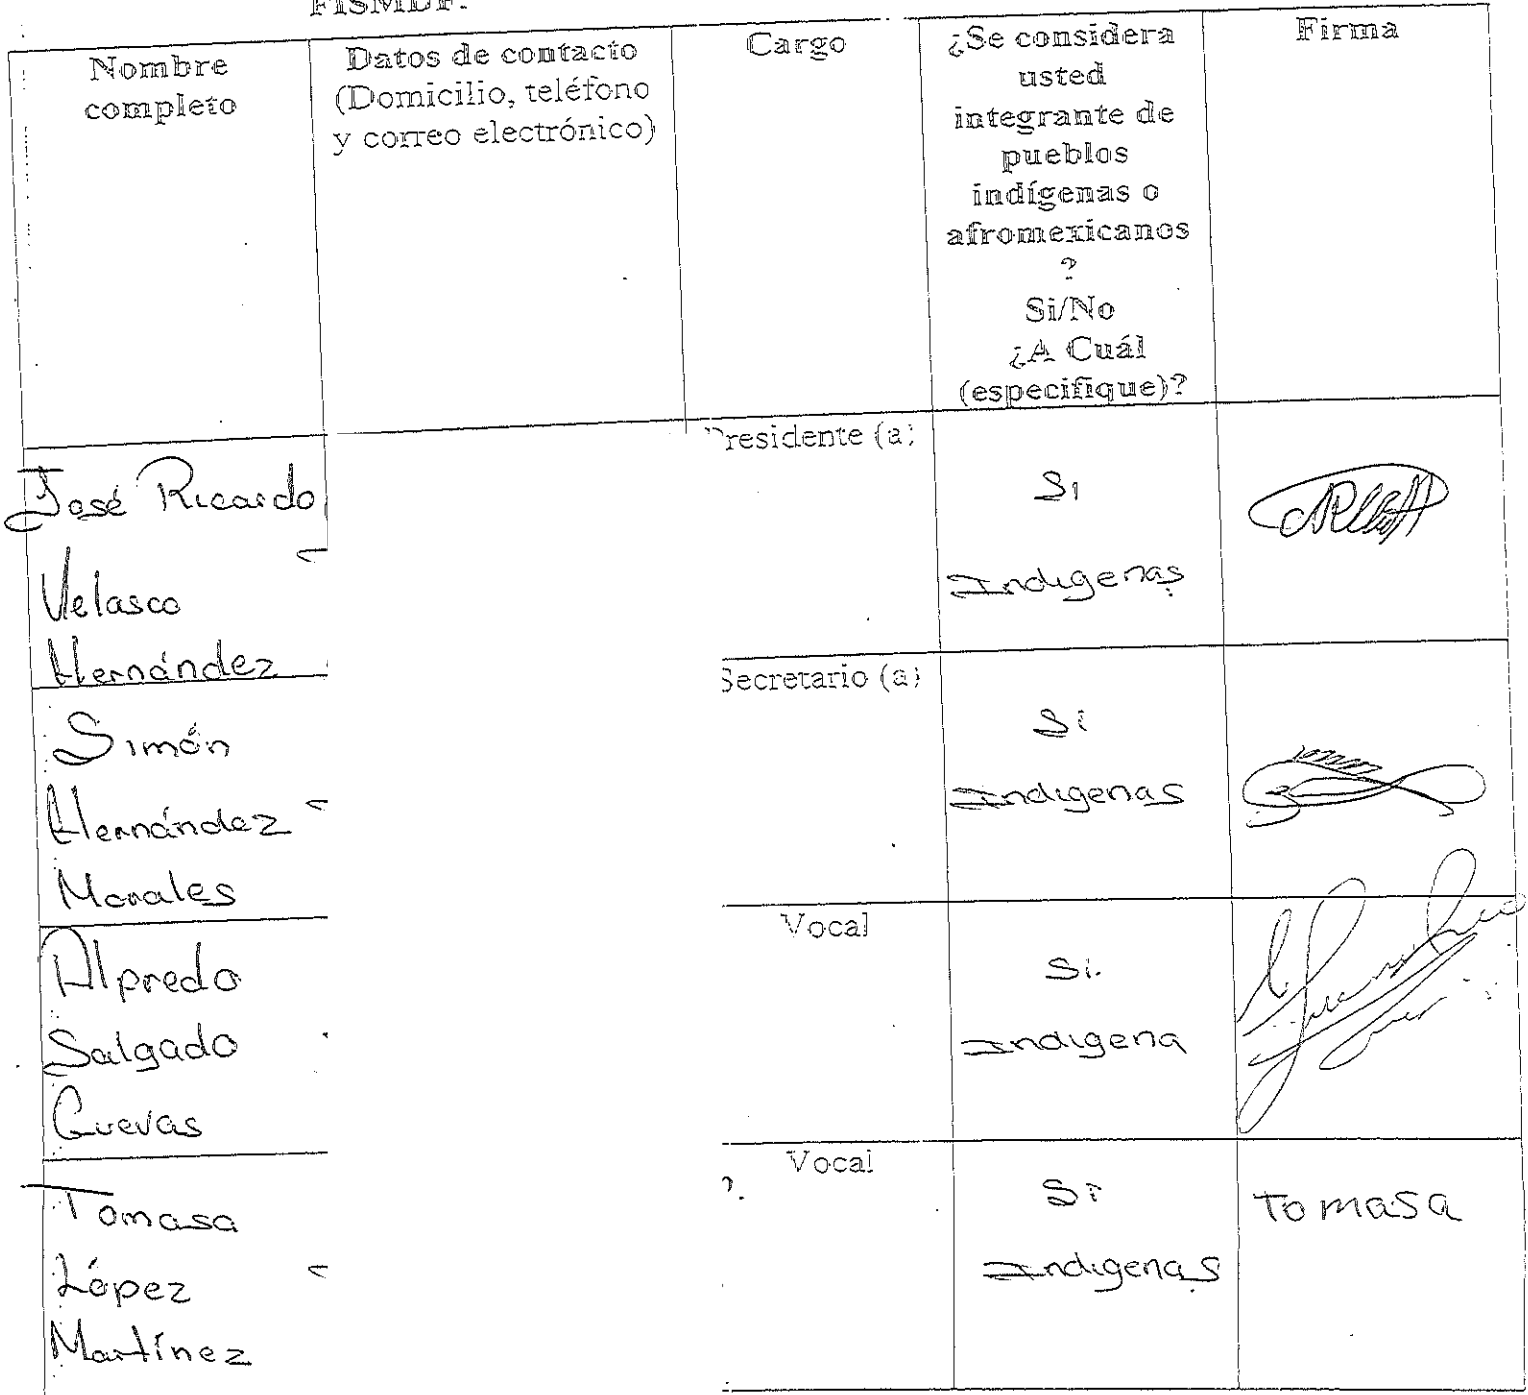 FISMDF.
Nombre
completo
Datos de contacto
(Domicilio, teléfono
y correo electrónico)
Cargo
¿Se considera
usted
integrante de
pueblos
indígenas o
afromexicanos
?
Si/No
¿A Cuál
(especifique)?
Firma
José Ricardo
Velasco
Hernández
Presidente (a)
Si
Indigenas
Simón
Hernández
Morales
Secretario (a)
Si
Indigenas
Alpredo
Salgado
Cuevas
Vocal
Si.
Indigena
Tomasa
López
Martínez
Vocal
Si
Indigenas
Tomasa